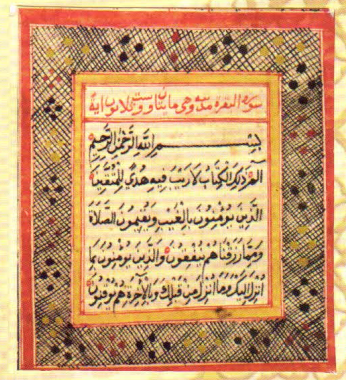 سورة البقرة مدنية وهي مايتان وست وثمانون اية
بسم الله الرحمن الرحيم
الم ذلك الكتاب لا ريب فيه هدى للمتقين
الذين يؤمنون بالغيب ويقيمون الصلاة
ومما رزقناهم ينفقون والذين يؤمنون بما
انزل اليك وما انزل من قبلك وبالآخرة هم يوقنون